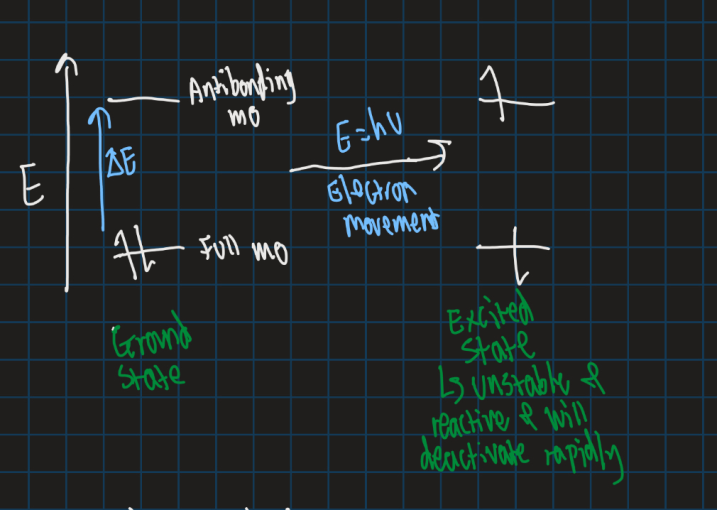 Antibonding
MO
E
ΔE
E=hν
Electron
movement
Full MO
Ground
state
Excited
state
↳ unstable &
reactive & will
deactivate rapidly